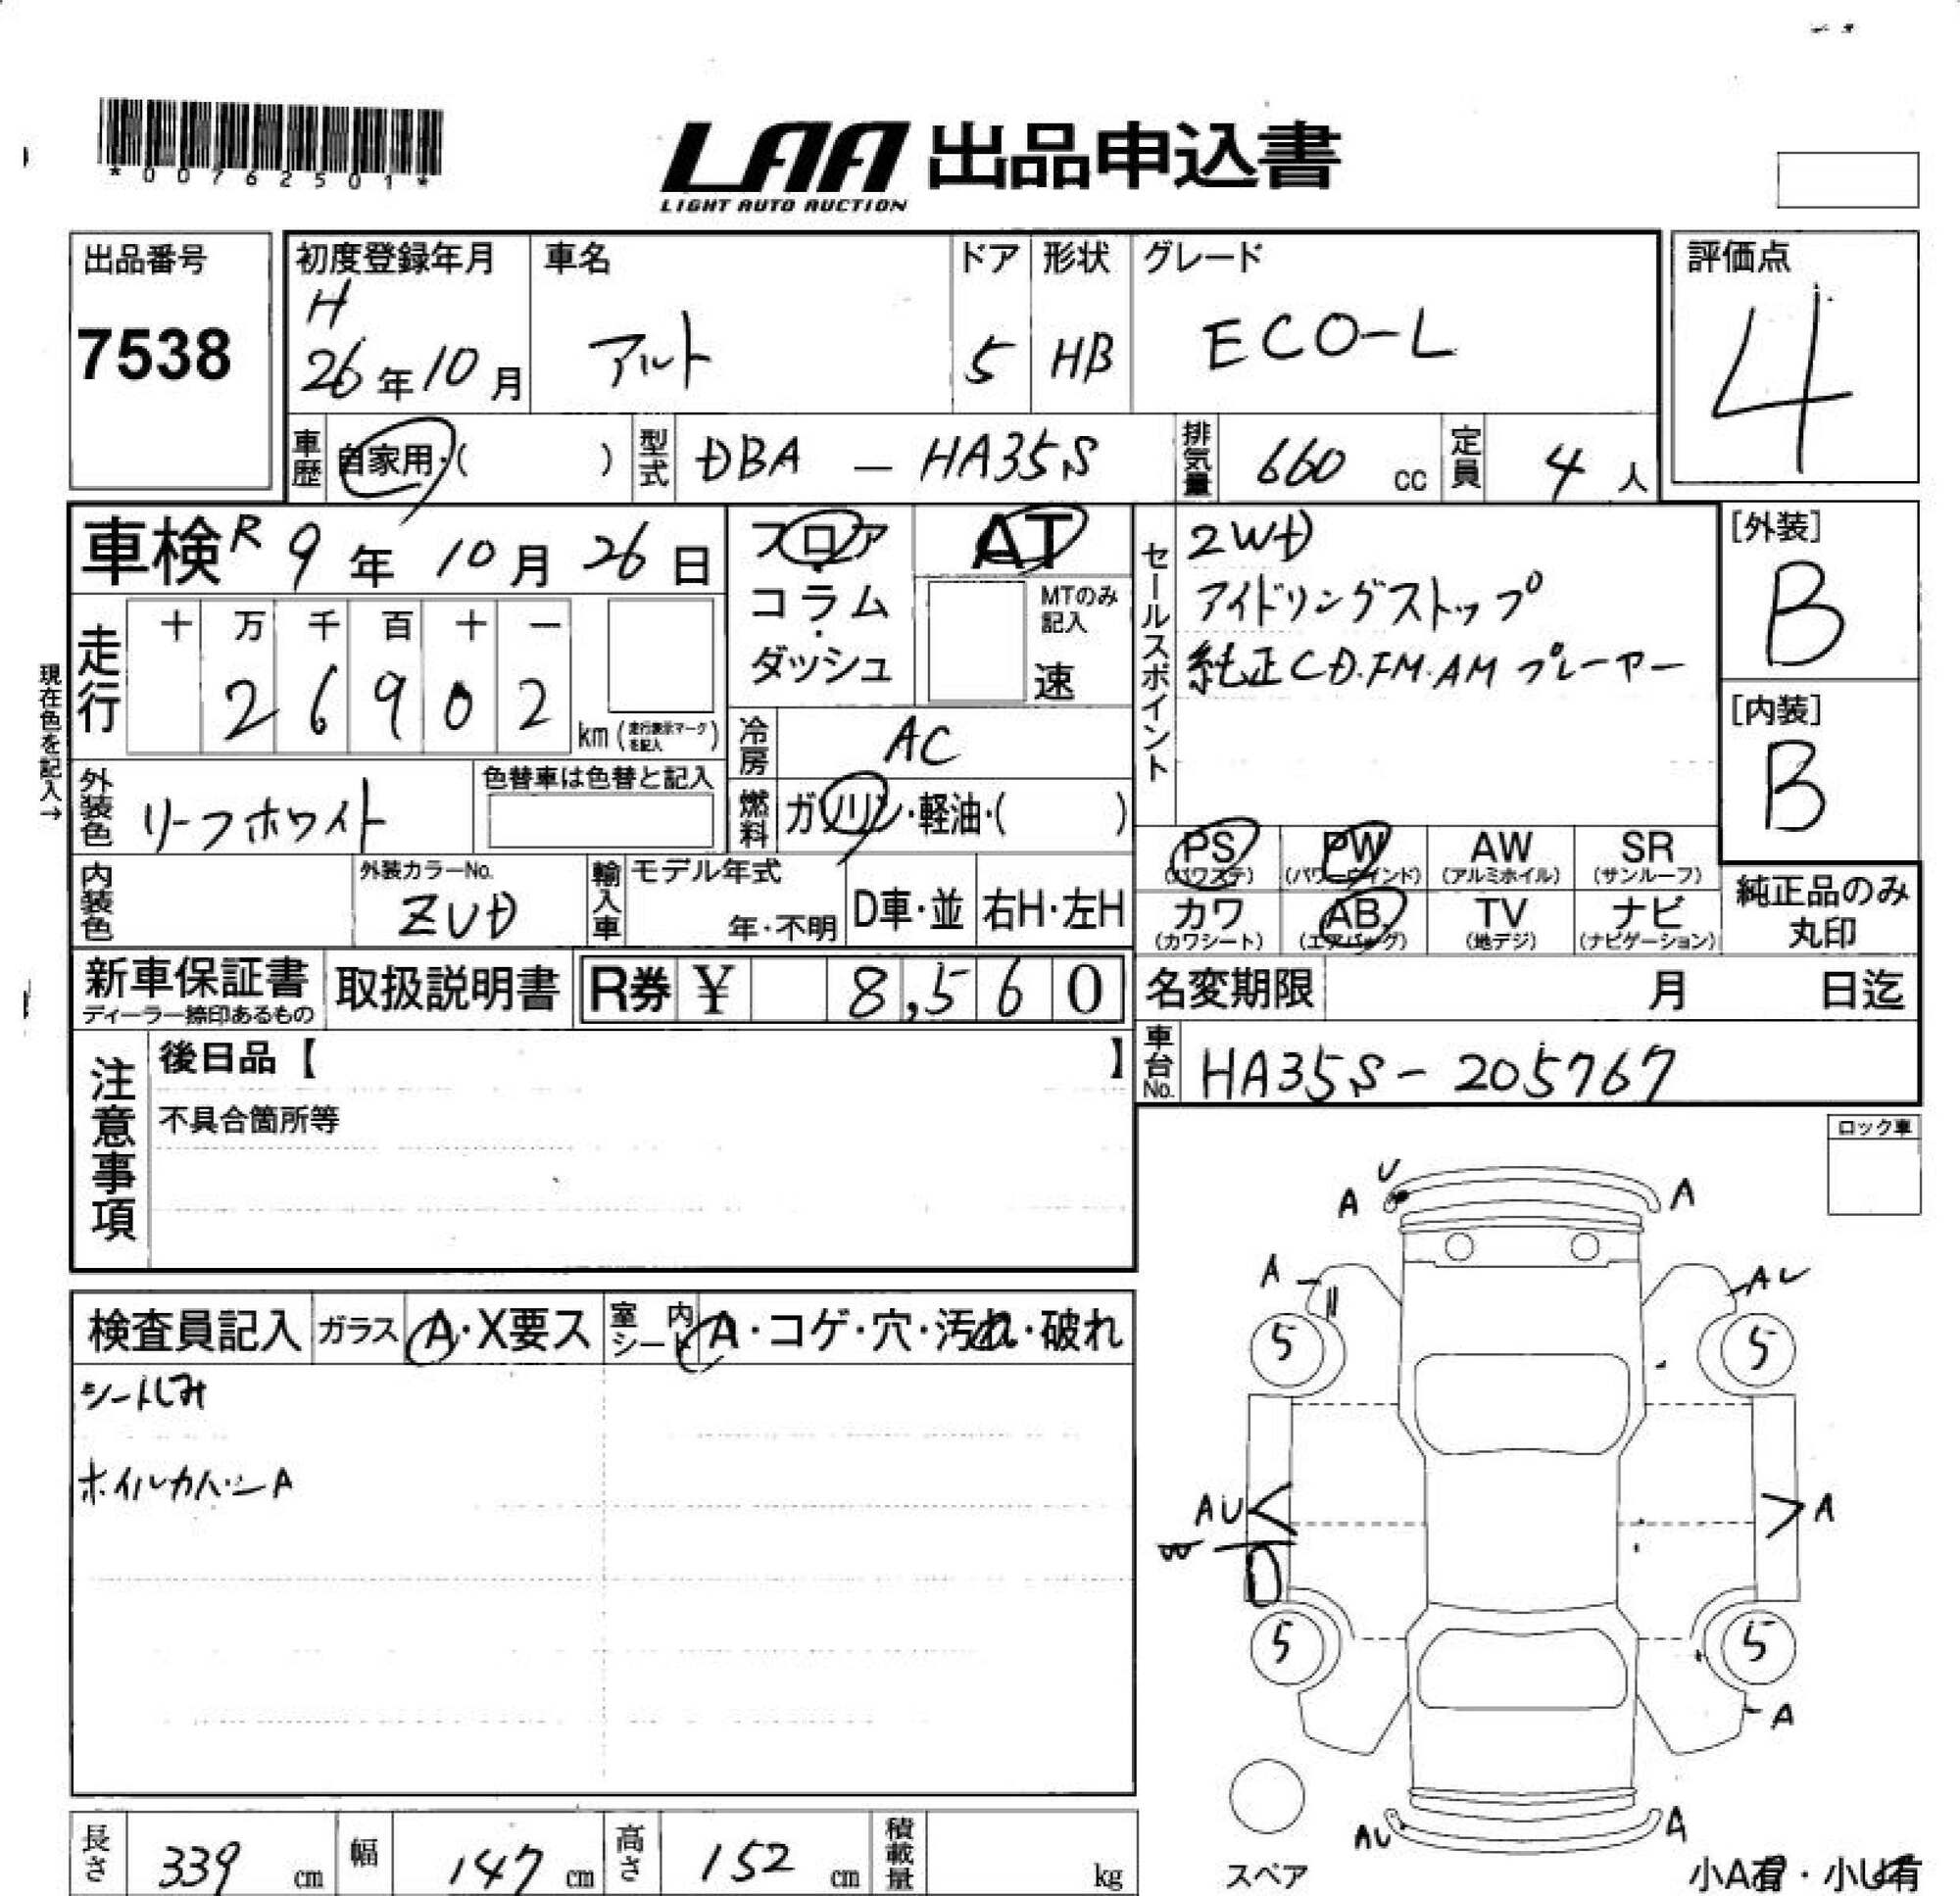 *00762501*
LAA 出品申込書
LIGHT AUTO AUCTION
出品番号
7538
初度登録年月
H
26年10月
車名
アルト
ドア
5
形状
HB
グレード
ECO-L
評価点
4
車歴
自家用・( )
型式
DBA - HA35S
排気量
660 cc
定員
4 人
車検 R 9年 10月 26日
現在色を記入→
走行
十 万 千 百 十 一
2 6 9 0 2
km (走行表示マークを記入)
外装色
リーフホワイト
色替車は色替と記入
内装色
外装カラーNo.
ZUD
輸入車
モデル年式
年・不明
D車・並
右H・左H
フロア
・
コラム
・
ダッシュ
AT
MTのみ
記入
速
冷房
AC
燃料
ガソリン・軽油・( )
セールスポイント
2WD
アイドリングストップ
純正CD.FM.AMプレーヤー
[外装]
B
[内装]
B
PS
(パワステ)
PW
(パワーウインド)
AW
(アルミホイル)
SR
(サンルーフ)
カワ
(カワシート)
AB
(エアバッグ)
TV
(地デジ)
ナビ
(ナビゲーション)
純正品のみ
丸印
新車保証書
ディーラー捺印あるもの
取扱説明書
R券 ¥ 8,560
名変期限 月 日迄
車台No.
HA35S-205767
注意事項
後日品【 】
不具合箇所等
ロック車
検査員記入
ガラス
A・X要ス
室内
シート
A・コゲ・穴・汚れ・破れ
シートしみ
ホイルカバーA
U
A
A
A
AU
5
5
AU
A
W
5
5
A
AU
A
スペア
小A有・小U有
長さ
339 cm
幅
147 cm
高さ
152 cm
積載量
kg